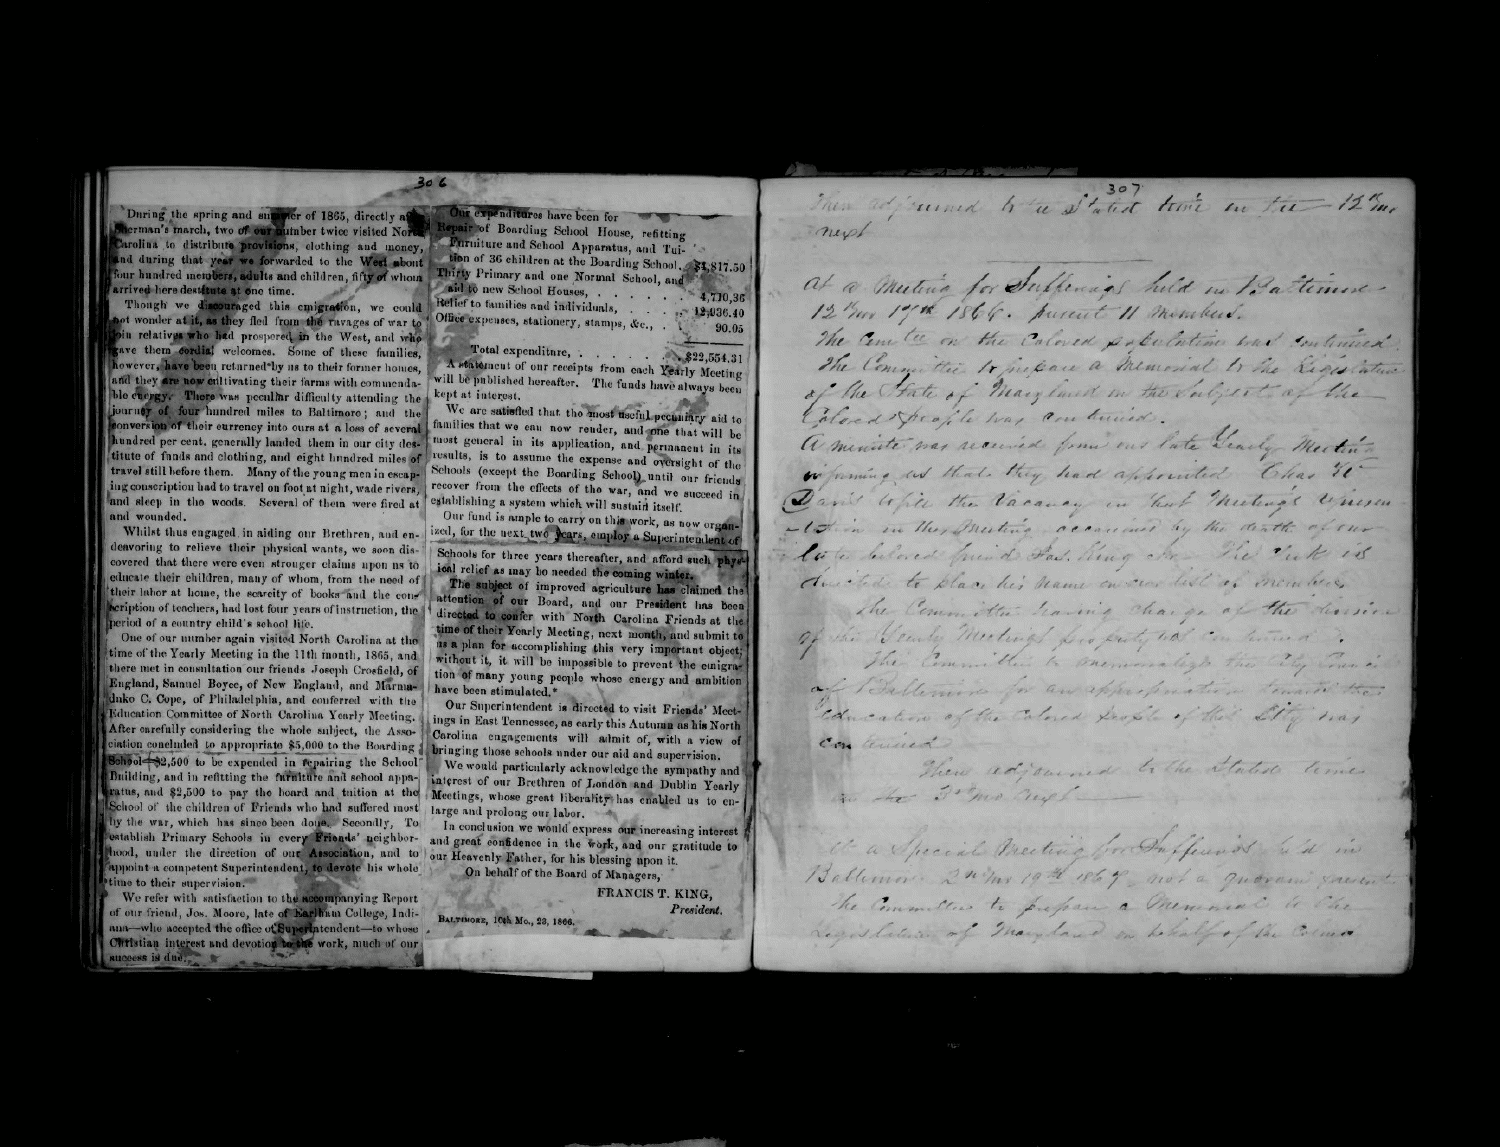 306
During the spring and summer of 1865, directly
Sherman's march, two of our number twice visited North
Carolina to distribute provisions, clothing and money,
and during that year we forwarded to the West about
four hundred members, adults and children, fifty of whom
arrived here destitute at one time.
Though we discouraged this emigration, we could
not wonder at it, as they fled from the ravages of war to
join relatives who had prospered in the West, and who
gave them cordial welcomes. Some of these families,
however, have been returned by us to their former homes,
and they are now cultivating their farms with commenda-
ble energy. There was peculiar difficulty attending the
journey of four hundred miles to Baltimore; and the
conversion of their currency into ours at a loss of several
hundred per cent. generally landed them in our city des-
titute of funds and clothing, and eight hundred miles of
travel still before them. Many of the young men in escap-
ing conscription had to travel on foot at night, wade rivers,
and sleep in the woods. Several of them were fired at
and wounded.
Whilst thus engaged in aiding our Brethren, and en-
deavoring to relieve their physical wants, we soon dis-
covered that there were even stronger claims upon us to
educate their children, many of whom, from the need of
their labor at home, the scarcity of books and the con-
scription of teachers, had lost four years of instruction, the
period of a country child's school life.
One of our number again visited North Carolina at the
time of the Yearly Meeting in the 11th month, 1865, and
there met in consultation our friends Joseph Crosfield, of
England, Samuel Boyce, of New England, and Marma-
duke C. Cope, of Philadelphia, and conferred with the
Education Committee of North Carolina Yearly Meeting.
After carefully considering the whole subject, the Asso-
ciation concluded to appropriate $5,000 to the Boarding
School—$2,500 to be expended in repairing the School
Building, and in refitting the furniture and school appa-
ratus, and $2,500 to pay the board and tuition at the
School of the children of Friends who had suffered most
by the war, which has since been done. Secondly, To
establish Primary Schools in every Friends' neighbor-
hood, under the direction of our Association, and to
appoint a competent Superintendent, to devote his whole
time to their supervision.
We refer with satisfaction to the accompanying Report
of our friend, Jos. Moore, late of Earlham College, Indi-
ana—who accepted the office of Superintendent—to whose
Christian interest and devotion to the work, much of our
success is due.
Our expenditures have been for
Repair of Boarding School House, refitting
Furniture and School Apparatus, and Tui-
tion of 36 children at the Boarding School. $4,817.50
Thirty Primary and one Normal School, and
aid to new School Houses, . . . . . . 4,710,36
Relief to families and individuals, . . . . 12,936.40
Office expenses, stationery, stamps, &c., . . 90.05
Total expenditure, . . . . . . . $22,554.31
A statement of our receipts from each Yearly Meeting
will be published hereafter. The funds have always been
kept at interest.
We are satisfied that the most useful pecuniary aid to
families that we can now render, and one that will be
most general in its application, and permanent in its
results, is to assume the expense and oversight of the
Schools (except the Boarding School) until our friends
recover from the effects of the war, and we succeed in
establishing a system which will sustain itself.
Our fund is ample to carry on this work, as now organ-
ized, for the next two years, employ a Superintendent of
Schools for three years thereafter, and afford such phys-
ical relief as may be needed the coming winter.
The subject of improved agriculture has claimed the
attention of our Board, and our President has been
directed to confer with North Carolina Friends at the
time of their Yearly Meeting, next month, and submit to
us a plan for accomplishing this very important object;
without it, it will be impossible to prevent the emigra-
tion of many young people whose energy and ambition
have been stimulated.*
Our Superintendent is directed to visit Friends' Meet-
ings in East Tennessee, as early this Autumn as his North
Carolina engagements will admit of, with a view of
bringing those schools under our aid and supervision.
We would particularly acknowledge the sympathy and
interest of our Brethren of London and Dublin Yearly
Meetings, whose great liberality has enabled us to en-
large and prolong our labor.
In conclusion we would express our increasing interest
and great confidence in the work, and our gratitude to
our Heavenly Father, for his blessing upon it.
On behalf of the Board of Managers,
FRANCIS T. KING,
President.
BALTIMORE, 10th Mo., 23, 1866.
307
Then adjourned to the Stated time in the 12th mo
next
At a Meeting for Sufferings held in Baltimore
12th mo 17th 1866. present 11 members.
The Comtee on the Colored population was continued
The Committee to prepare a Memorial to the Legislature
of the State of Maryland on the Subject of the
Colored people was continued.
A minute was received from our late Yearly Meeting
informing us that they had appointed Chas
to fill the Vacancy in that Meetings represen-
-tation in this Meeting occasioned by the death of our
late beloved friend Jas. King The Clerk is
directed to place his name on our list of members
The Committee having charge of the division
of the Yearly Meetings property was continued.
The Committee to memorialize the City Council
of Baltimore for an appropriation towards the
education of the Colored people of this City was
continued
Then adjourned to the Stated time
in the 3rd mo next
At a Special Meeting for Sufferings held in
Baltimore 2nd mo 19th 1867 not a quorum present
The Committee to prepare a Memorial to the
Legislature of Maryland on behalf of the Colored